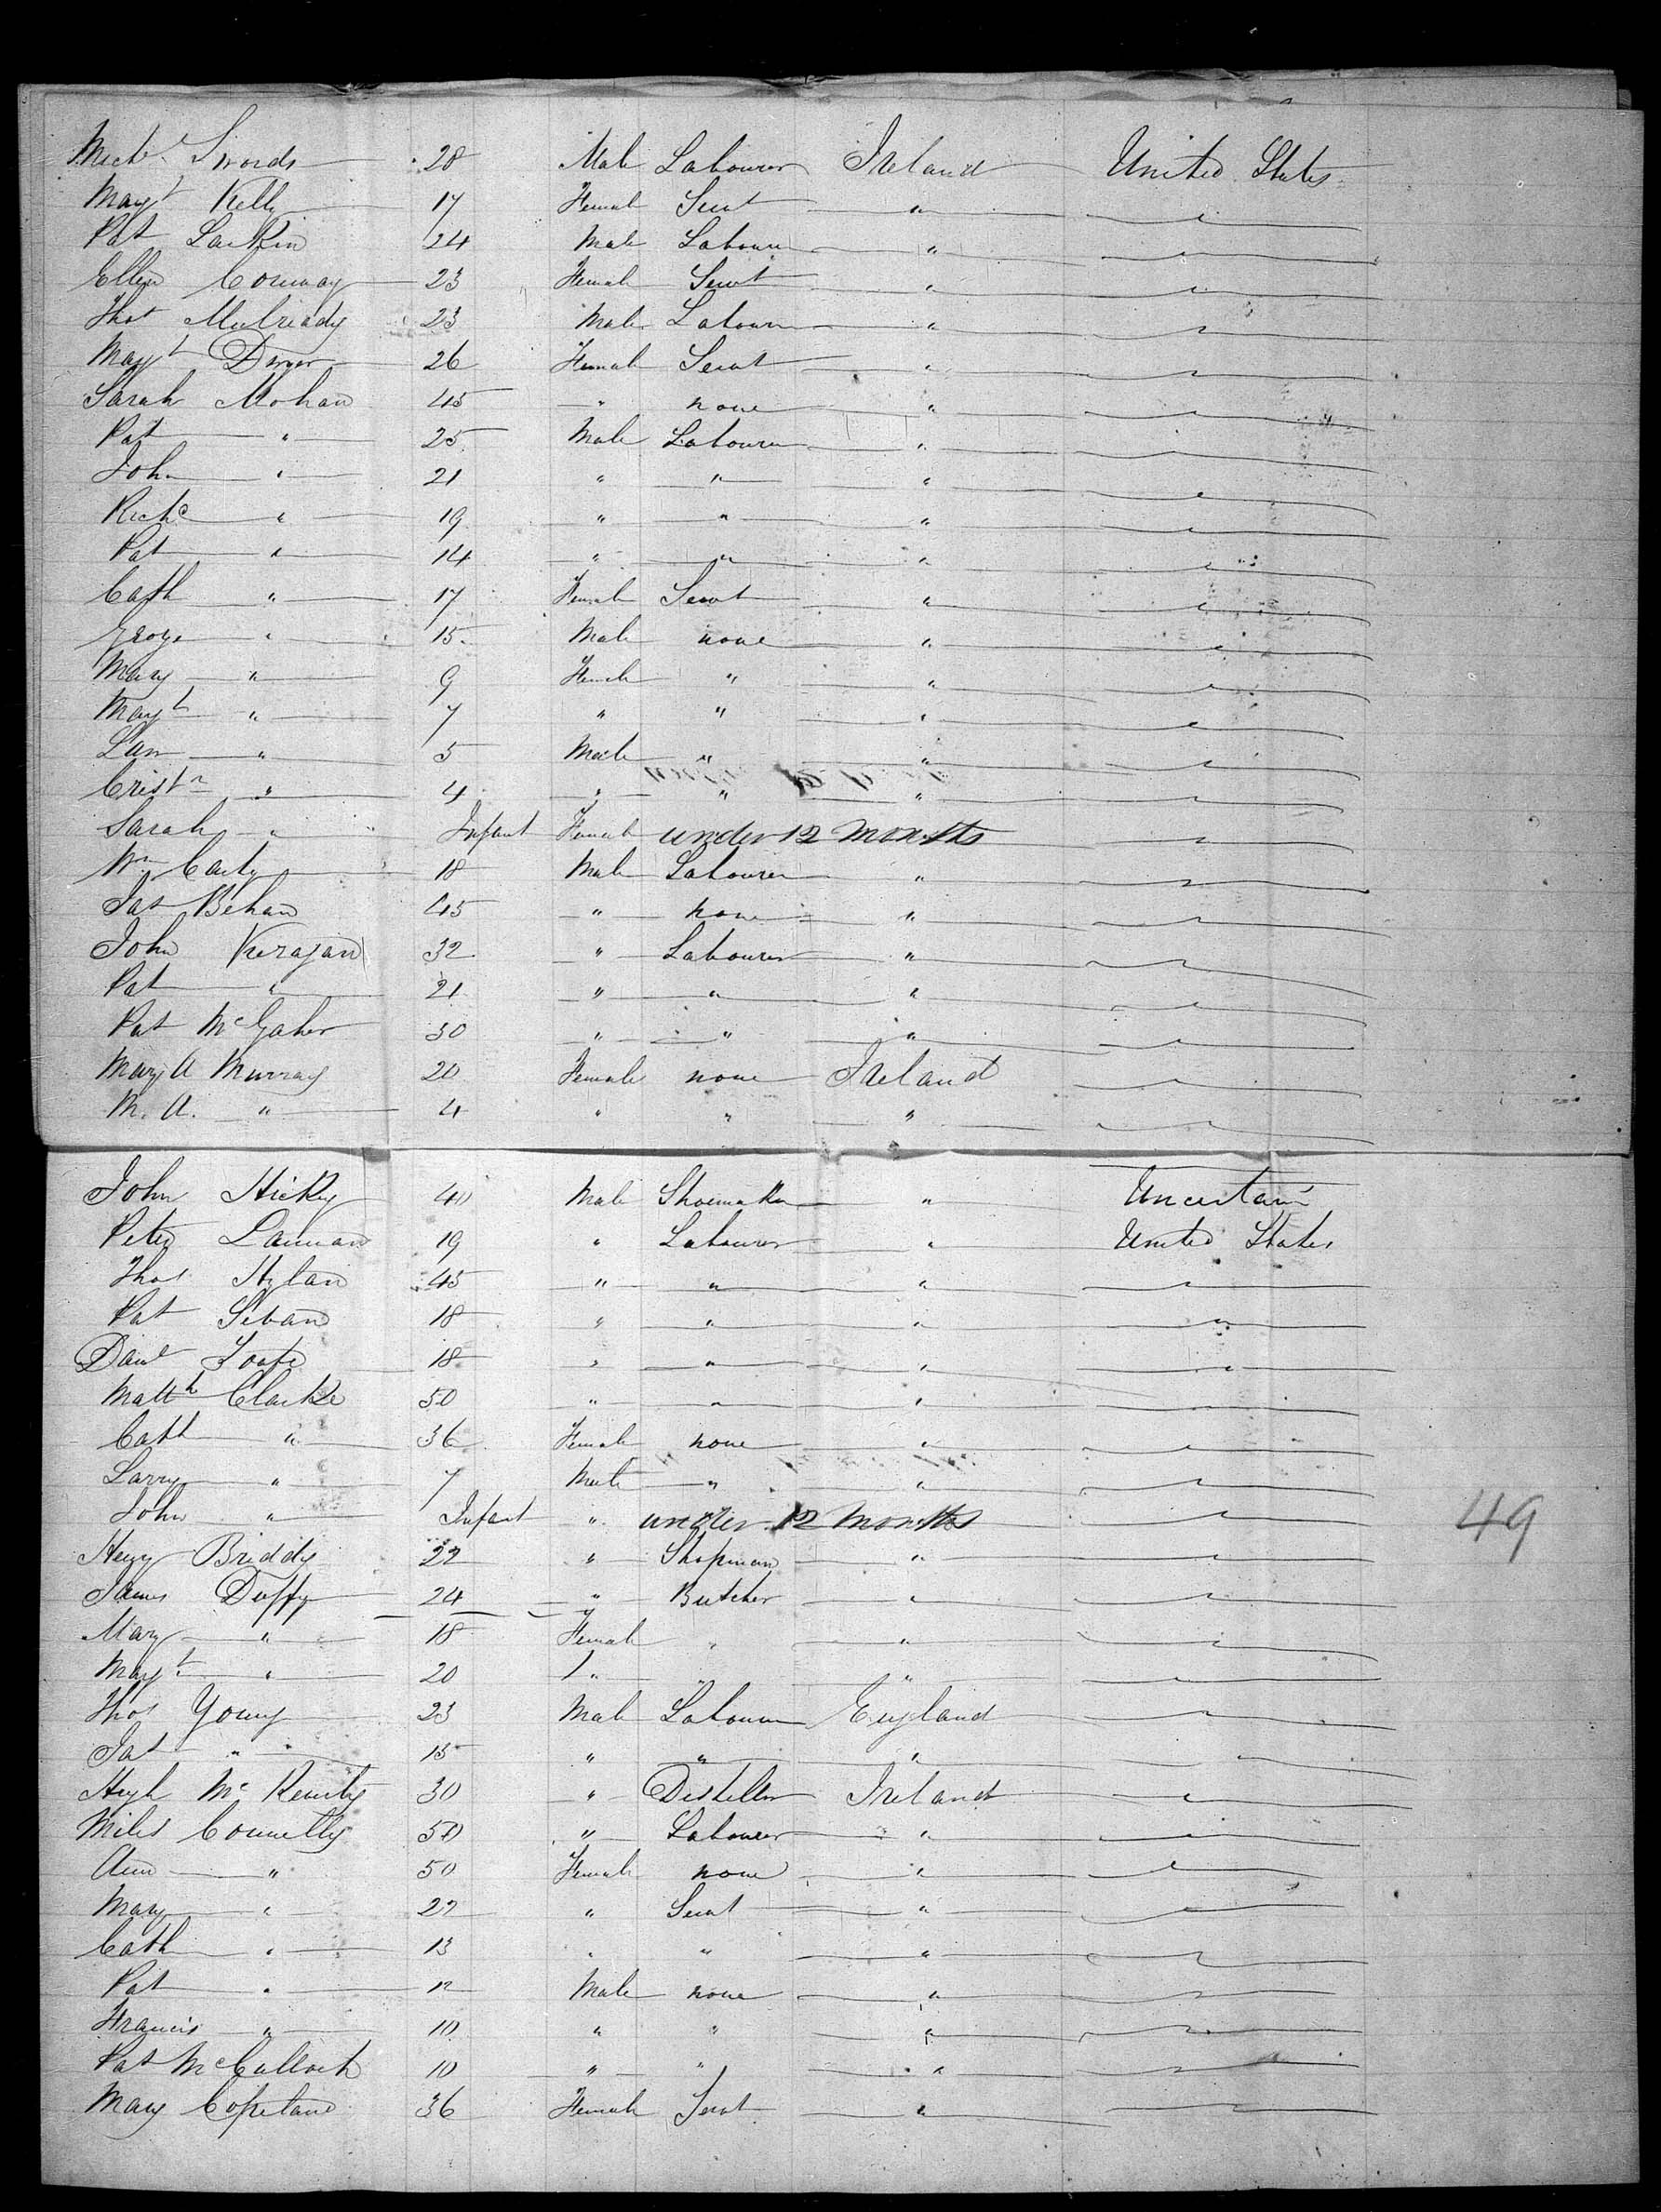 Mich. Swords 28 Male Labourer Ireland United States
Margt Kelly 17 Female Servt " "
Pat Larkin 24 Male Labourer " "
Ellen Conway 23 Female Servt " "
Thos Mulready 23 Male Labourer " "
Margt 26 Female Servt " "
Sarah Mohan 45 " none " "
Pat " 25 Male Labourer " "
John " 21 " " " "
Richd " 19 " " " "
Pat " 14 " " " "
Cath " 17 Female Servt " "
George " 15 Male none " "
Mary " 9 Female " " "
Margt " 7 " " " "
" 5 Male " " "
Cristr " 4 " " " "
Sarah " Infant Female under 12 months "
Wm Carty 18 Male Labourer " "
Jas Behan 45 " none " "
John Keragan 32 " Labourer " "
Pat " 21 " " " "
Pat McGaher 30 " " " "
Mary A Murray 20 Female none Ireland "
M. A. " 4 " " " "
John Hicky 40 Male Shoemaker " Uncertain
Peter Lannan 19 " Labourer " United States
Thos Hylan 45 " " " "
Pat 18 " " " "
Danl 18 " " " "
Matth Clarke 50 " " " "
Cath " 36 Female none " "
Larry " 7 Male " " "
John " Infant " under 12 months "
Henry Briddy 22 " Shopman " "
James Duffy 24 " Butcher " "
Mary " 18 Female " " "
Margt " 20 " " " "
Thos Young 23 Male Labourer England "
Jas " 15 " " " "
Hugh Mc 30 " Distiller Ireland "
Miles Connelly 50 " Labourer " "
Ann " 50 Female none " "
Mary " 22 " Servt " "
Cath " 13 " " " "
Pat " 12 Male none " "
Francis " 10 " " " "
Pat McCulloch 10 " " " "
Mary Copeland 36 Female Servt " "
49